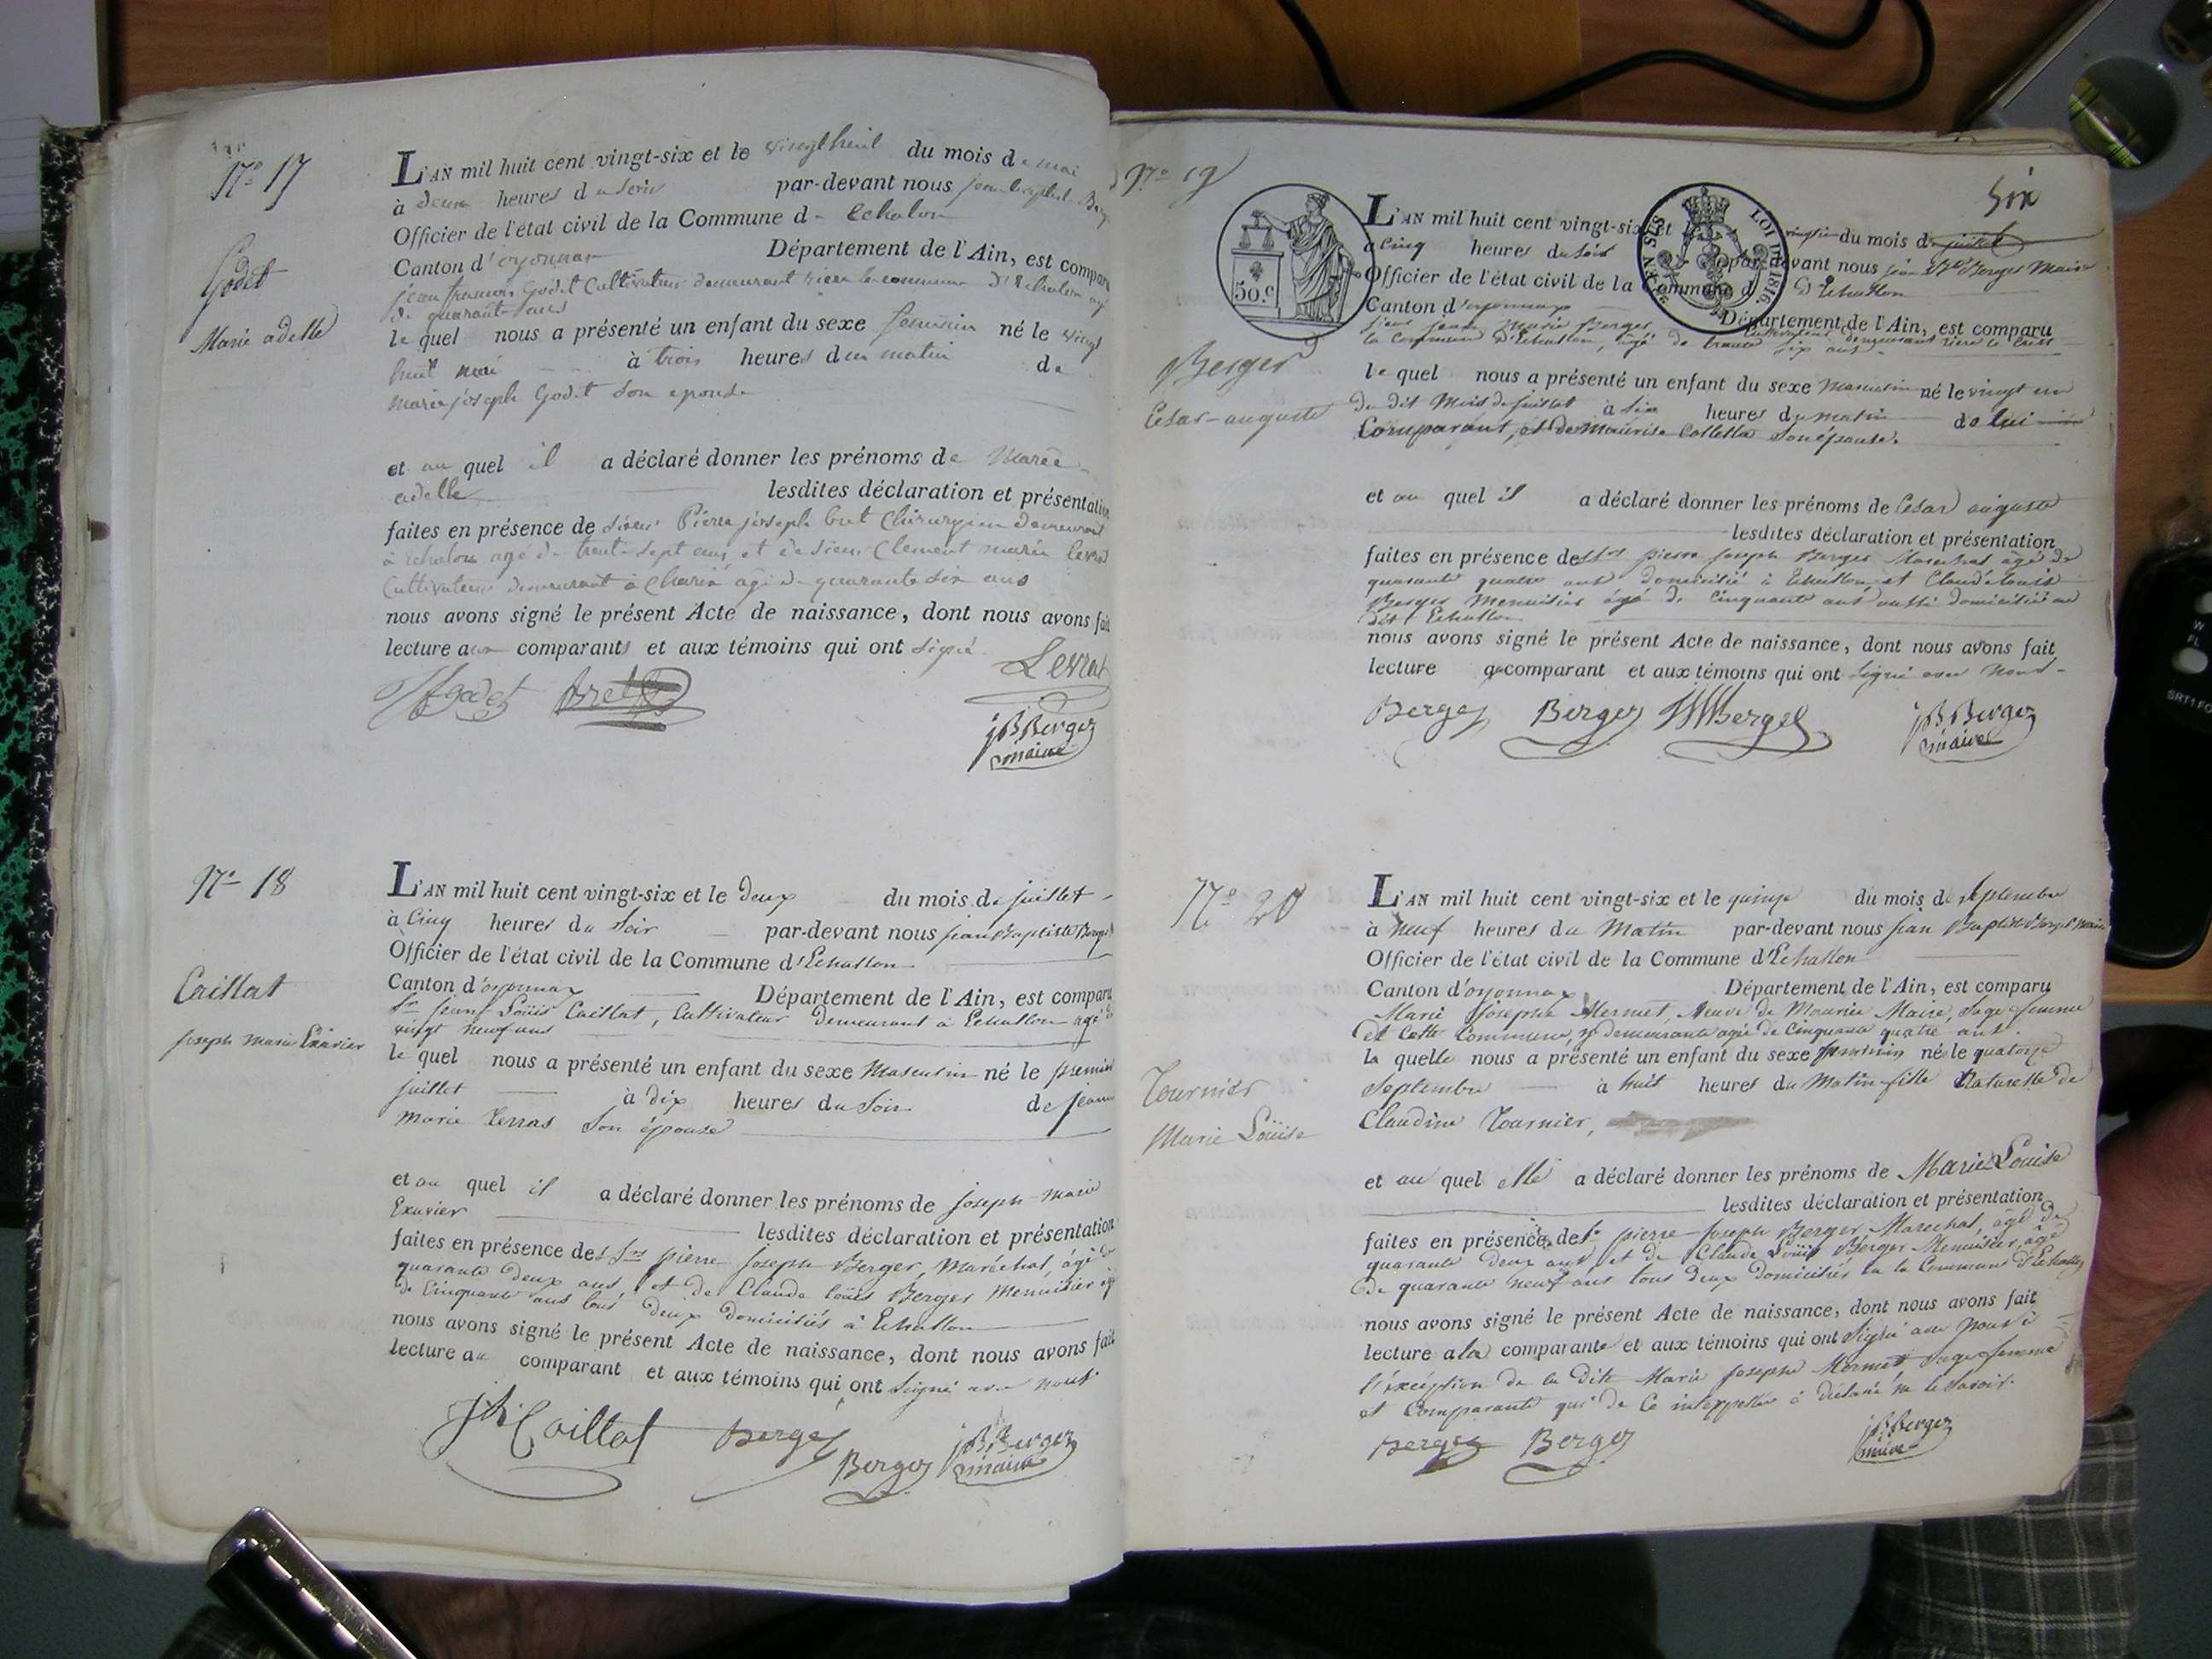 N° 17
Godet
Marie adelle
L'AN mil huit cent vingt-six et le vingt huit du mois de mai
à deux heures du soir par-devant nous jean baptiste Berger
Officier de l'état civil de la Commune d' Echalon
Canton d'oyonnax Département de l'Ain, est comparu
jean francois Godet Cultivateur demeurant riere la commune d'Echalon agé
de quarante ans
le quel nous a présenté un enfant du sexe feminin né le vingt
huit mai à trois heures du matin de
marie joseph Godet son epouse
et au quel il a déclaré donner les prénoms de Marie
adelle lesdites déclaration et présentation
faites en présence de sieur Pierre joseph bret Chirurgien demeurant
à Echalon agé de trente sept ans, et de sieur Clement marie levrat
Cultivateur demeurant à agé de quarante six ans
nous avons signé le présent Acte de naissance, dont nous avons fait
lecture aux comparants et aux témoins qui ont signé
Levrat
Godet Bret
jB Berger
maire
N° 18
Caillat
Joseph marie Exavier
L'AN mil huit cent vingt-six et le deux du mois de juillet
à Cinq heures du Soir par-devant nous jean Baptiste Berger
Officier de l'état civil de la Commune d'Echallon
Canton d'oyonnax Département de l'Ain, est comparu
Sr jean Loüis Caillat, Cultivateur demeurant à Echallon agé de
vingt neuf ans
le quel nous a présenté un enfant du sexe Masculin né le premier
juillet à dix heures du Soir de jeanne
Marie Perras Son épouse
et au quel il a déclaré donner les prénoms de joseph-marie
Exavier lesdites déclaration et présentation
faites en présence des Srs pierre joseph Berger, Maréchal, âgé de
quarante deux ans, et de Claude loüis Berger Menuisier agé
de Cinquante ans tous deux domiciliés à Echallon
nous avons signé le présent Acte de naissance, dont nous avons fait
lecture au comparant et aux témoins qui ont Signé avec nous
Caillat Berger
Berger jB Berger
maire
Six
N° 19
50.c
SIS EN SUS
LOI DE 1816
Berger
César-auguste
L'AN mil huit cent vingt-six et le du mois de juillet
à cinq heures du soir par-devant nous jean Bte Berger Maire
Officier de l'état civil de la Commune d' d'Echallon
Canton d'oyonnax Département de l'Ain, est comparu
Sieur jean Marie Berger demeurant riere
la Commune d'Echallon, agé de trente six ans
le quel nous a présenté un enfant du sexe masculin né le vingt un
du dit Mois de juillet à six heures du matin de lui
Comparant, et de Maurise Colletta son épouse.
et au quel il a déclaré donner les prénoms de César auguste
lesdites déclaration et présentation
faites en présence des Srs pierre joseph Berger Marechal âgé de
quarante quatre ans domicilié à Echallon et Claude Louis
Berger Menuisier âgé de Cinquante ans aussi domicilié au
dit Echallon
nous avons signé le présent Acte de naissance, dont nous avons fait
lecture au comparant et aux témoins qui ont signé avec nous
Berger Berger Berger jB Berger
maire
N° 20
Tournier
Marie Loüise
L'AN mil huit cent vingt-six et le quinze du mois de septembre
à neuf heures du Matin par-devant nous jean Baptiste Berger Maire
Officier de l'état civil de la Commune d'Echallon
Canton d'oyonnax Département de l'Ain, est comparu
Marie Josephe Mermet, Veuve de Maurice Maire, Sage femme
de Cette Commune, y demeurante agée de Cinquante quatre ans.
la quelle nous a présenté un enfant du sexe feminin né le quatorze
septembre à huit heures du Matin fille Naturelle de
Claudine Tournier,
et au quel elle a déclaré donner les prénoms de Marie Louise
lesdites déclaration et présentation
faites en présence de Sr pierre Joseph Berger Marechal, âgé de
quarante deux ans et de Claude Loüis Berger Menuisier, âgé
de quarante neuf ans tous deux domiciliés en la Commune d'Echallon
nous avons signé le présent Acte de naissance, dont nous avons fait
lecture a la comparante et aux témoins qui ont signé avec nous à
l'éxception de la dite Marie josephe Mermet Sage femme
et Comparante qui de Ce interpellée à déclaré ne le savoir.
Berger Berger
jB Berger
maire